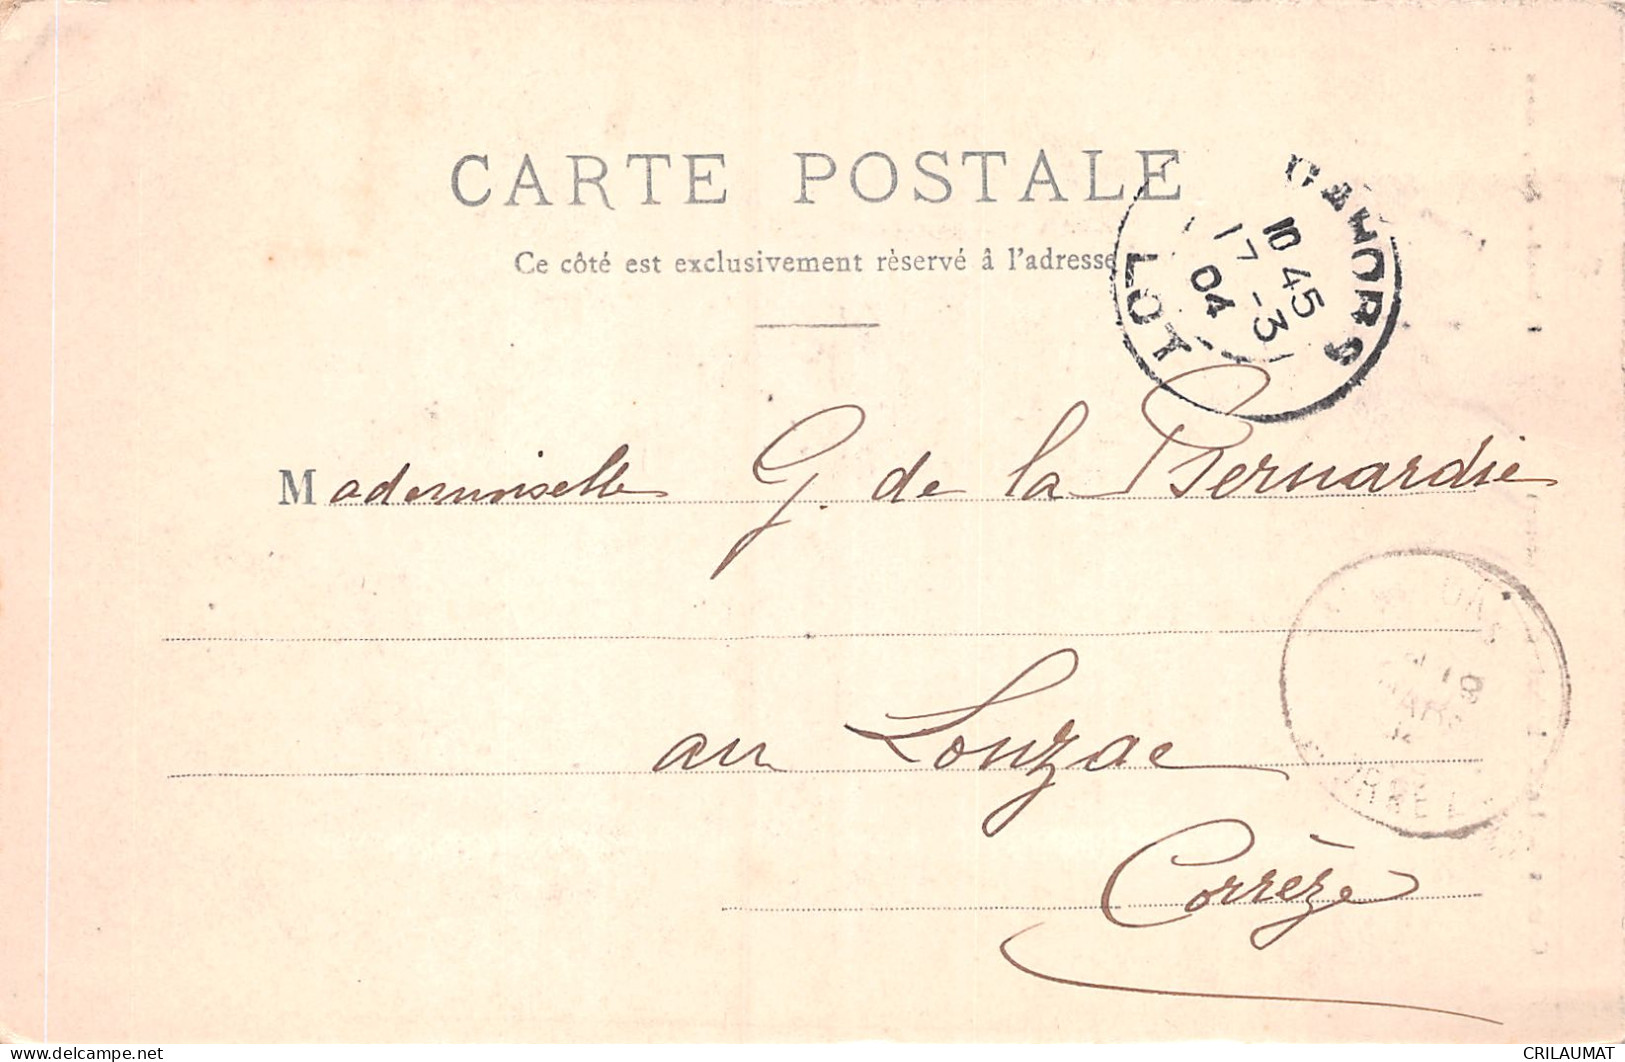 CARTE POSTALE
Ce côté est exclusivement réservé à l'adresse
CAHORS
10 45
17 -3
04
LOT
Mademoiselle G. de la Bernardie
au Louzac
Corrèze
18
MARS
delcampe.net
CRILAUMAT